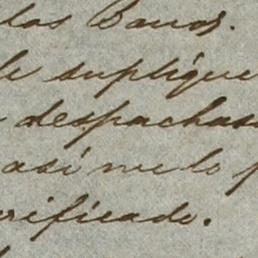 las Banos.
le suplique
despachase
así me lo p
rificado.